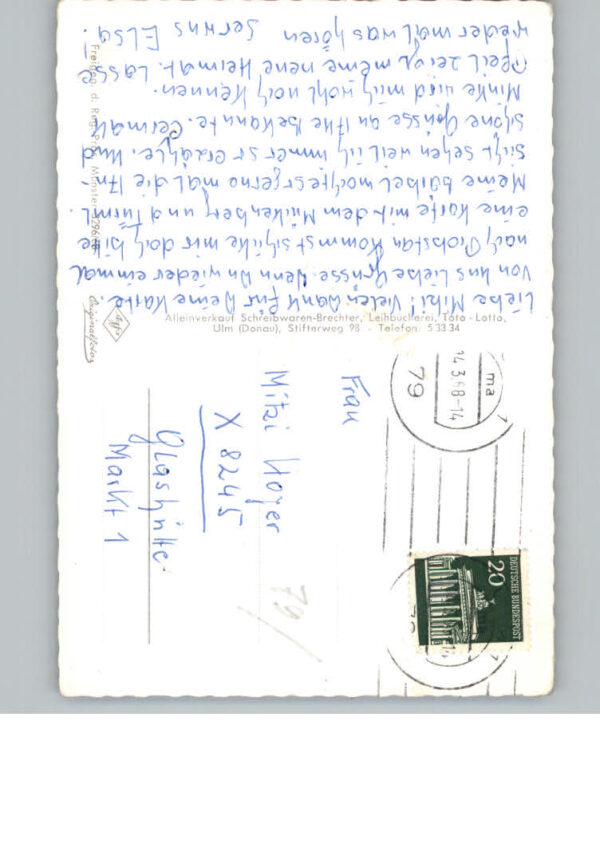 Liebe Mitzi! Vielen Dank für Deine Karte.
von uns Liebe Grüsse. Wenn Du wieder einmal
nach Probstau kommst schicke mir doch bitte
eine Karte mit dem Mückenberg und Türml.
Meine bärbel möchte so gerne mal die An-
sicht sehen weil ich immer so erzähle. Und
schöne Grüsse an Alle bekannte. Cermak
Minke wird mich wohl noch kennen.
Pfeil zeigt meine neue Heimat. Lasse
wieder mal was hören Servus Elsa.
Freigeg. d. Reg. Präs. Münster
Agfa
Originalfoto
Alleinverkauf Schreibwaren-Brechter, Leihbücherei, Toto - Lotto,
Ulm (Donau), Stifterweg 98 - Telefon: 5 33 34
Frau
Mitzi Hoyer
X 8245
Glashütte
Markt 1
79/
79
14.3.68-14
ma
20
DEUTSCHE BUNDESPOST